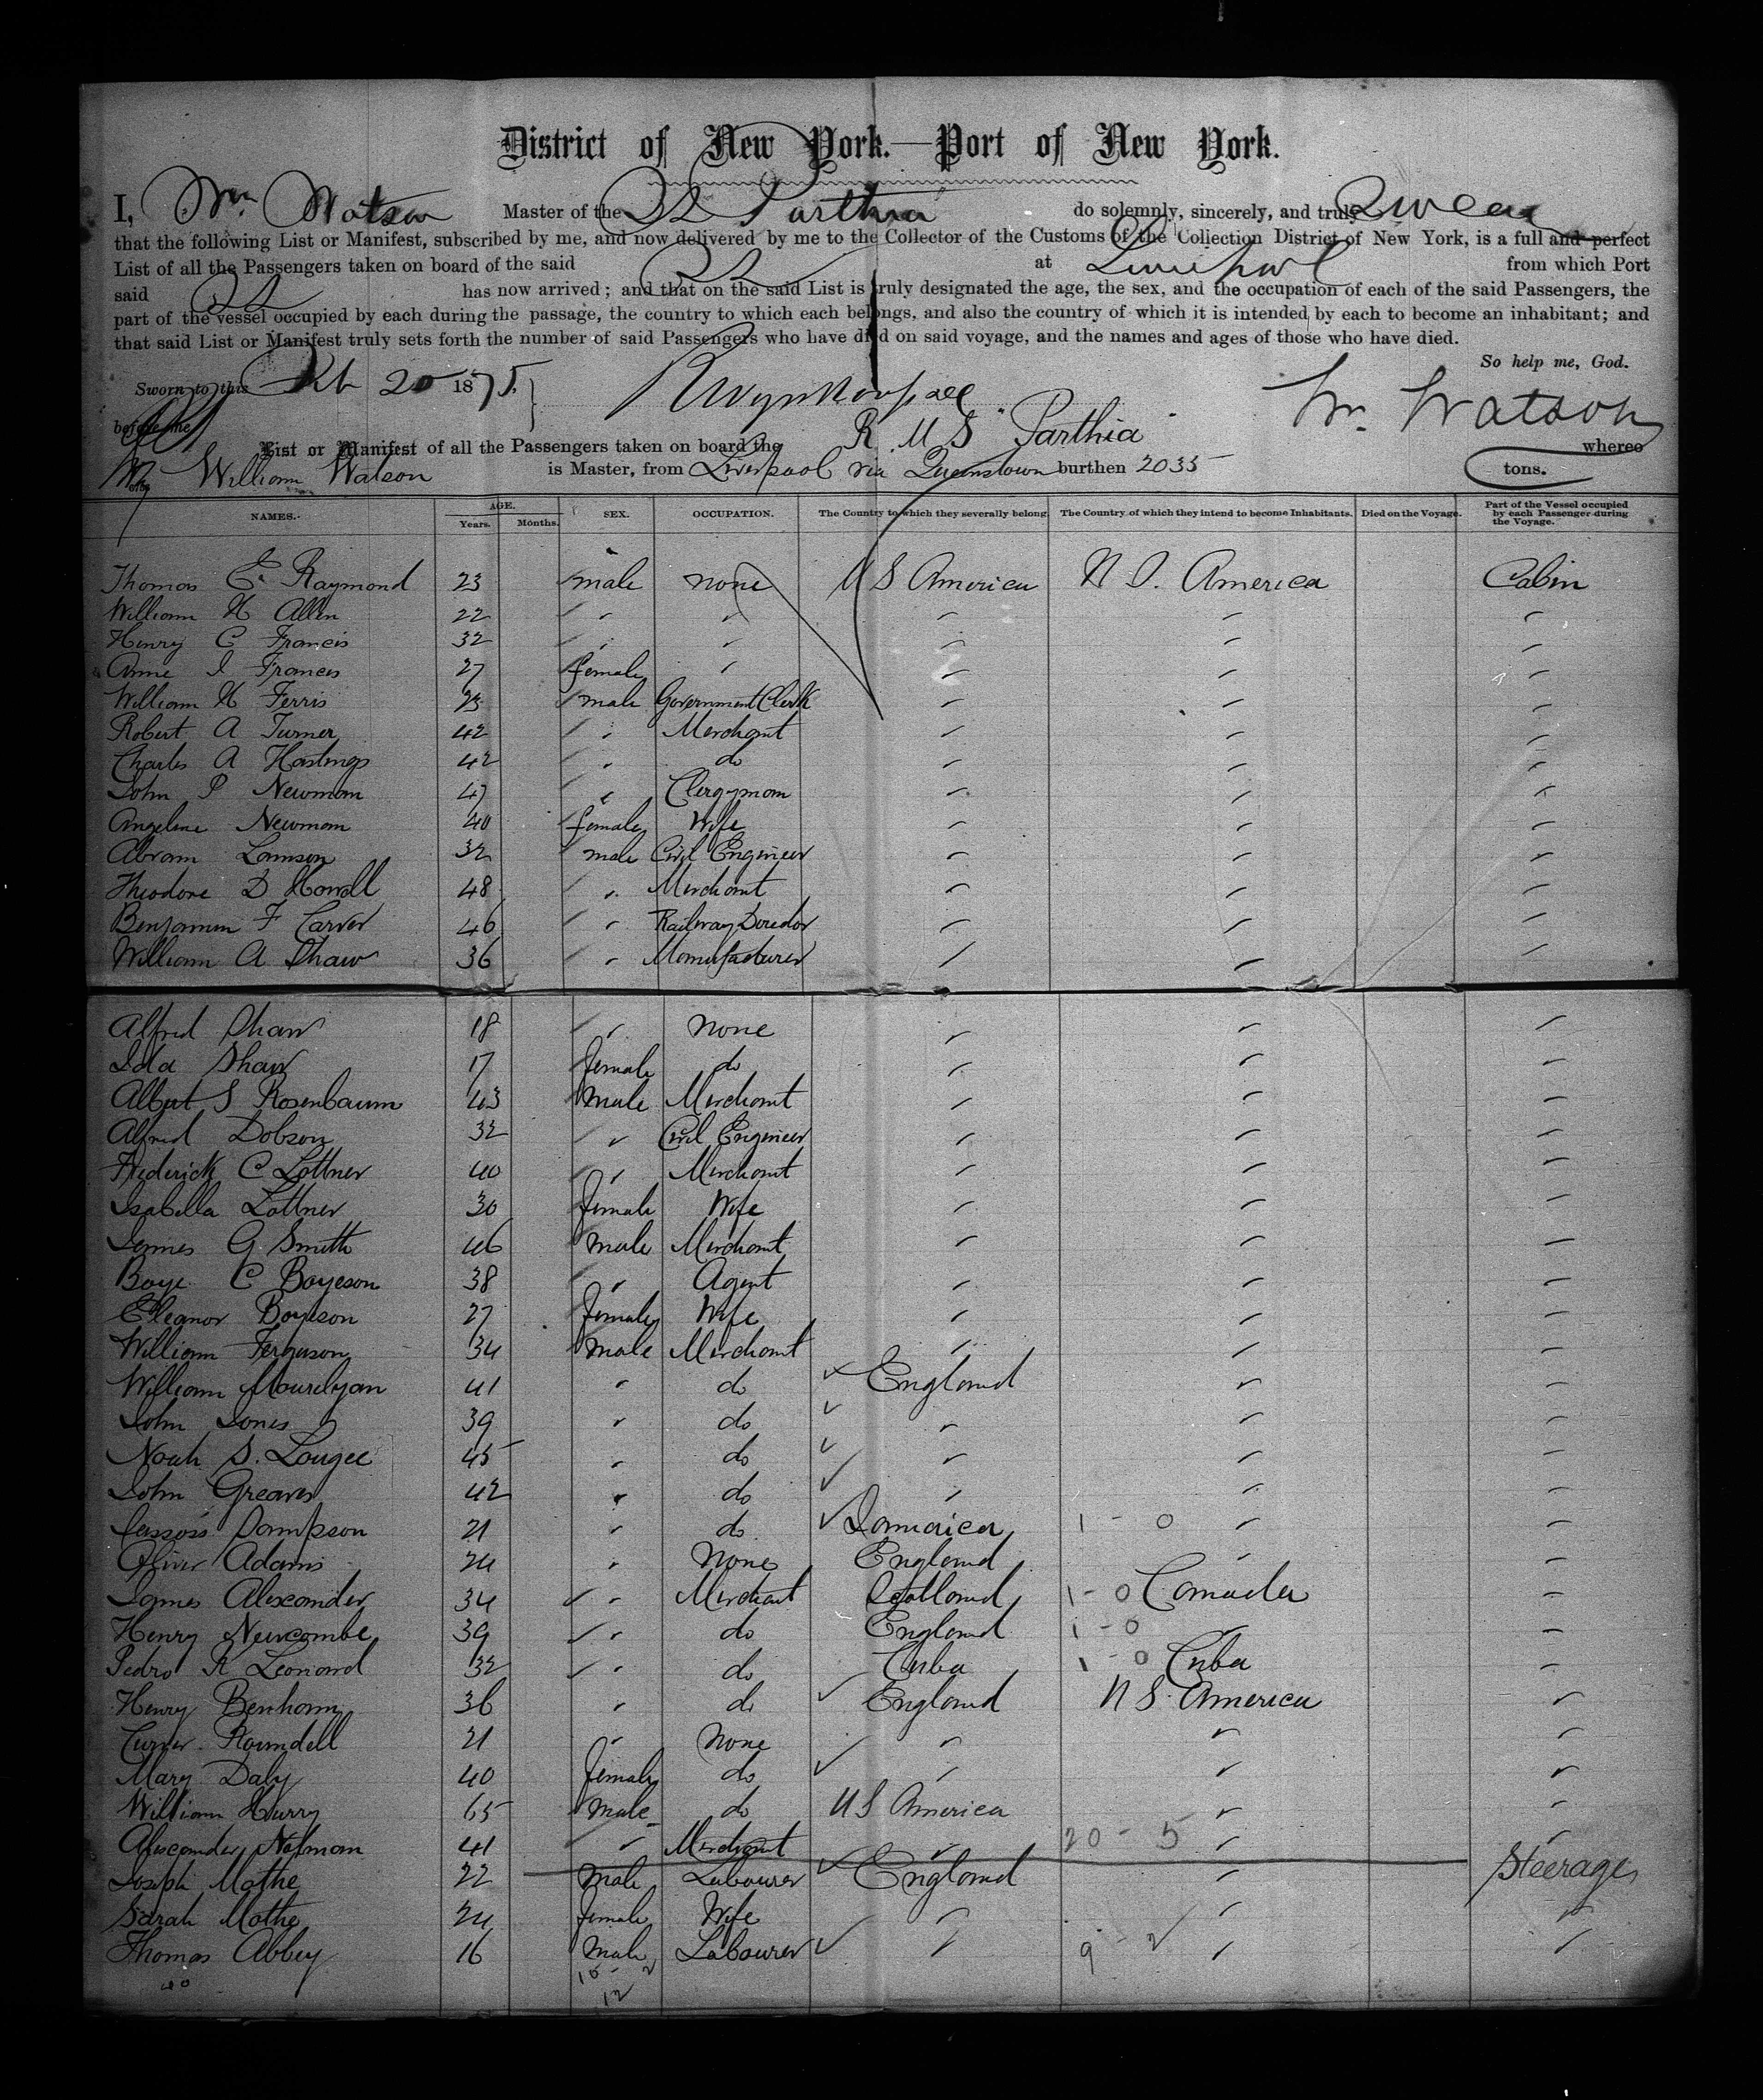 District of New York.—Port of New York.
I, Wm. Watson Master of the SS Parthia do solemnly, sincerely, and truly Swear
that the following List or Manifest, subscribed by me, and now delivered by me to the Collector of the Customs of the Collection District of New York, is a full and perfect
List of all the Passengers taken on board of the said SS at Liverpool from which Port
said SS has now arrived; and that on the said List is truly designated the age, the sex, and the occupation of each of the said Passengers, the
part of the vessel occupied by each during the passage, the country to which each belongs, and also the country of which it is intended by each to become an inhabitant; and
that said List or Manifest truly sets forth the number of said Passengers who have died on said voyage, and the names and ages of those who have died.
So help me, God.
Sworn to this Feb 20 1875
before me Wm. Watson
List or Manifest of all the Passengers taken on board the R M S "Parthia" whereo
William Watson is Master, from Liverpool via Queenstown burthen 2035 tons.
NAMES. AGE. Years. Months. SEX. OCCUPATION. The Country to which they severally belong. The Country of which they intend to become Inhabitants. Died on the Voyage. Part of the Vessel occupied by each Passenger during the Voyage.
Thomas E. Raymond 23 male none U S America U S. America Cabin
William H Allen 22 " " " " "
Henry C Francis 32 " " " " "
Anne I Francis 27 female " " " "
William H Ferris 23 male Government Clerk " " "
Robert A Turner 42 " Merchant " " "
Charles A Hastings 42 " do " " "
John P Newman 47 " Clergyman " " "
Angeline Newman 40 female Wife " " "
Abram Lamson 32 male Civil Engineer " " "
Theodore D Howell 48 " Merchant " " "
Benjamin F Carver 46 " Railway Director " " "
William A Shaw 36 " Manufacturer " " "
Alfred Shaw 18 " none " " "
Ida Shaw 17 female do " " "
Albert S Rosenbaum 43 male Merchant " " "
Alfred Dobson 32 " Civil Engineer " " "
Frederick C Lottner 40 " Merchant " " "
Isabella Lottner 30 female Wife " " "
James G Smith 46 male Merchant " " "
Boye C Boyeson 38 " Agent " " "
Eleanor Boyeson 27 female Wife " " "
William Ferguson 34 male Merchant " " "
William Mourilyan 41 " do England " "
John Jones 39 " do " " "
Noah S. Lougee 45 " do " " "
John Greaves 42 " do " " "
Sampson 21 " do Jamaica 1 - 0 " "
Oliver Adams 24 " none England " "
James Alexander 34 " Merchant Scotland 1 - 0 Canada "
Henry Newcombe 39 " do England 1 - 0 " "
Pedro R Leonard 32 " do Cuba 1 - 0 Cuba "
Henry Benham 36 " do England U S. America "
Roundell 21 " none " " "
Mary Daly 40 female do " " "
William Hurry 65 male do U S America " "
Alexander Notman 41 " Merchant " 20 - 5 " "
Joseph Mathe 22 male Labourer England " Steerage
Sarah Mathe 24 female Wife " " "
Thomas Abbey 16 male Labourer " 9 - 2 " "
40 10 - 2
12